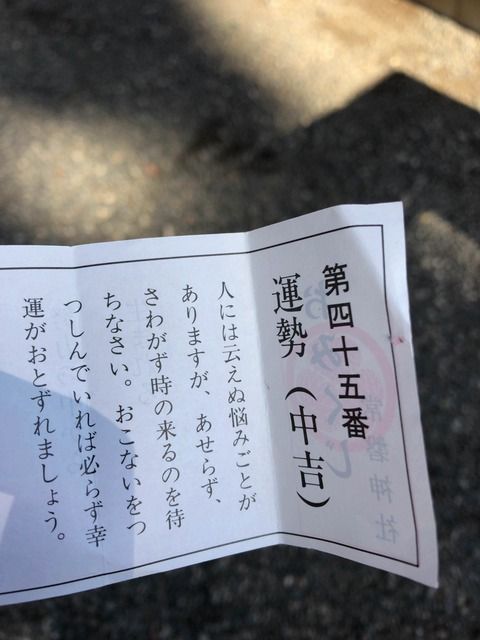 第四十五番
運勢(中吉)
人には云えぬ悩みごとが
ありますが、あせらず、
さわがず時の来るのを待
ちなさい。おこないをつ
つしんでいれば必らず幸
運がおとずれましょう。
おみくじ
常磐神社